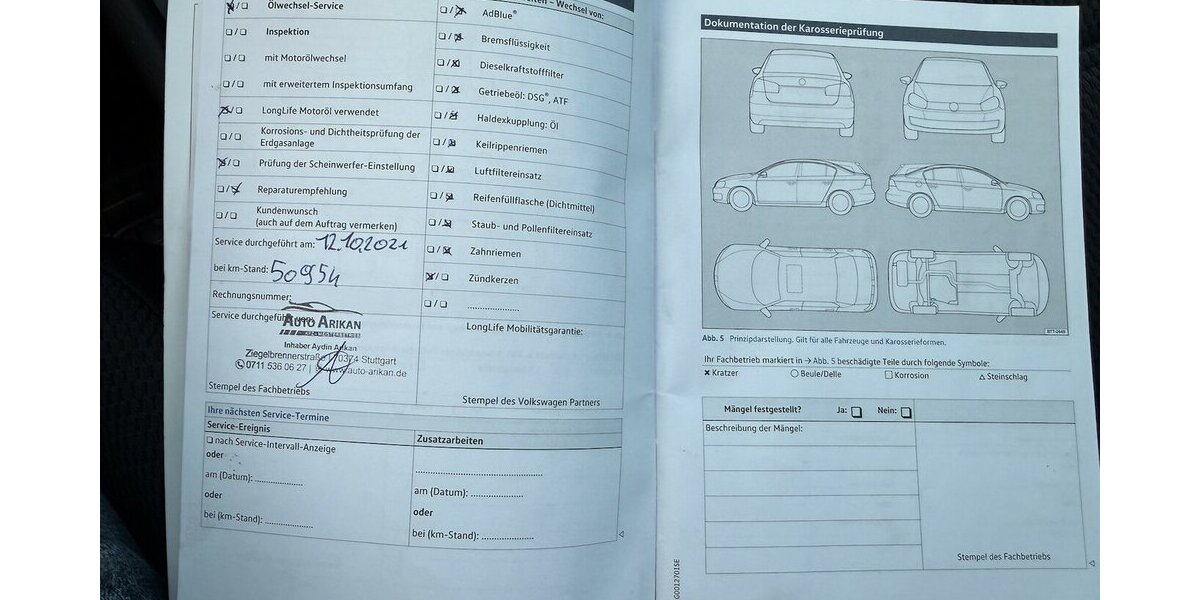 ❏/❏ Ölwechsel-Service
❏/❏ Inspektion
❏/❏ mit Motorölwechsel
❏/❏ mit erweitertem Inspektionsumfang
❏/❏ LongLife Motoröl verwendet
❏/❏ Korrosions- und Dichtheitsprüfung der
Erdgasanlage
❏/❏ Prüfung der Scheinwerfer-Einstellung
❏/❏ Reparaturempfehlung
❏/❏ Kundenwunsch
(auch auf dem Auftrag vermerken)
Service durchgeführt am: 12.10.2021
bei km-Stand: 50954
Rechnungsnummer:
Service durchgeführt von:
AUTO ARIKAN
KFZ-MEISTERBETRIEB
Inhaber Aydin Arikan
Ziegelbrennerstraße 70374 Stuttgart
0711 536 06 27 | www.auto-arikan.de
Stempel des Fachbetriebs
– Wechsel von:
❏/❏ AdBlue®
❏/❏ Bremsflüssigkeit
❏/❏ Dieselkraftstofffilter
❏/❏ Getriebeöl: DSG®, ATF
❏/❏ Haldexkupplung: Öl
❏/❏ Keilrippenriemen
❏/❏ Luftfiltereinsatz
❏/❏ Reifenfüllflasche (Dichtmittel)
❏/❏ Staub- und Pollenfiltereinsatz
❏/❏ Zahnriemen
❏/❏ Zündkerzen
❏/❏ ....................
LongLife Mobilitätsgarantie:
Stempel des Volkswagen Partners
Ihre nächsten Service-Termine
Service-Ereignis
❏ nach Service-Intervall-Anzeige
oder
am (Datum): ..................
oder
bei (km-Stand): ..................
Zusatzarbeiten
................................................
am (Datum): ....................
oder
bei (km-Stand): ....................
Dokumentation der Karosserieprüfung
BTT-2449
Abb. 5 Prinzipdarstellung. Gilt für alle Fahrzeuge und Karosserieformen.
Ihr Fachbetrieb markiert in → Abb. 5 beschädigte Teile durch folgende Symbole:
✖ Kratzer ○ Beule/Delle □ Korrosion △ Steinschlag
Mängel festgestellt? Ja: ❏ Nein: ❏
Beschreibung der Mängel:
Stempel des Fachbetriebs
G0012701SE